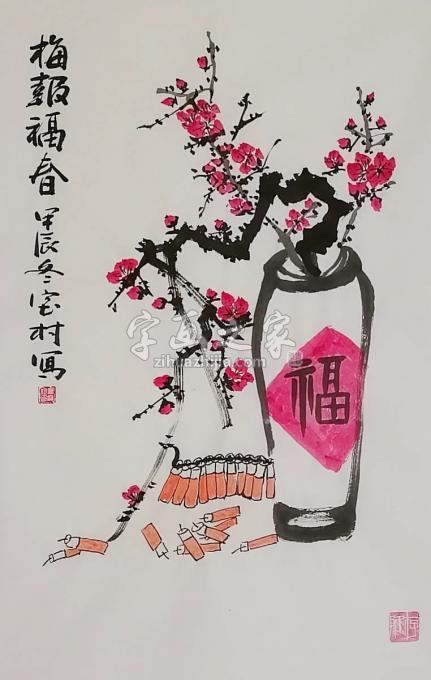 梅報福春
甲辰冬宝村写
福
字画之家
zihuazhijia.com